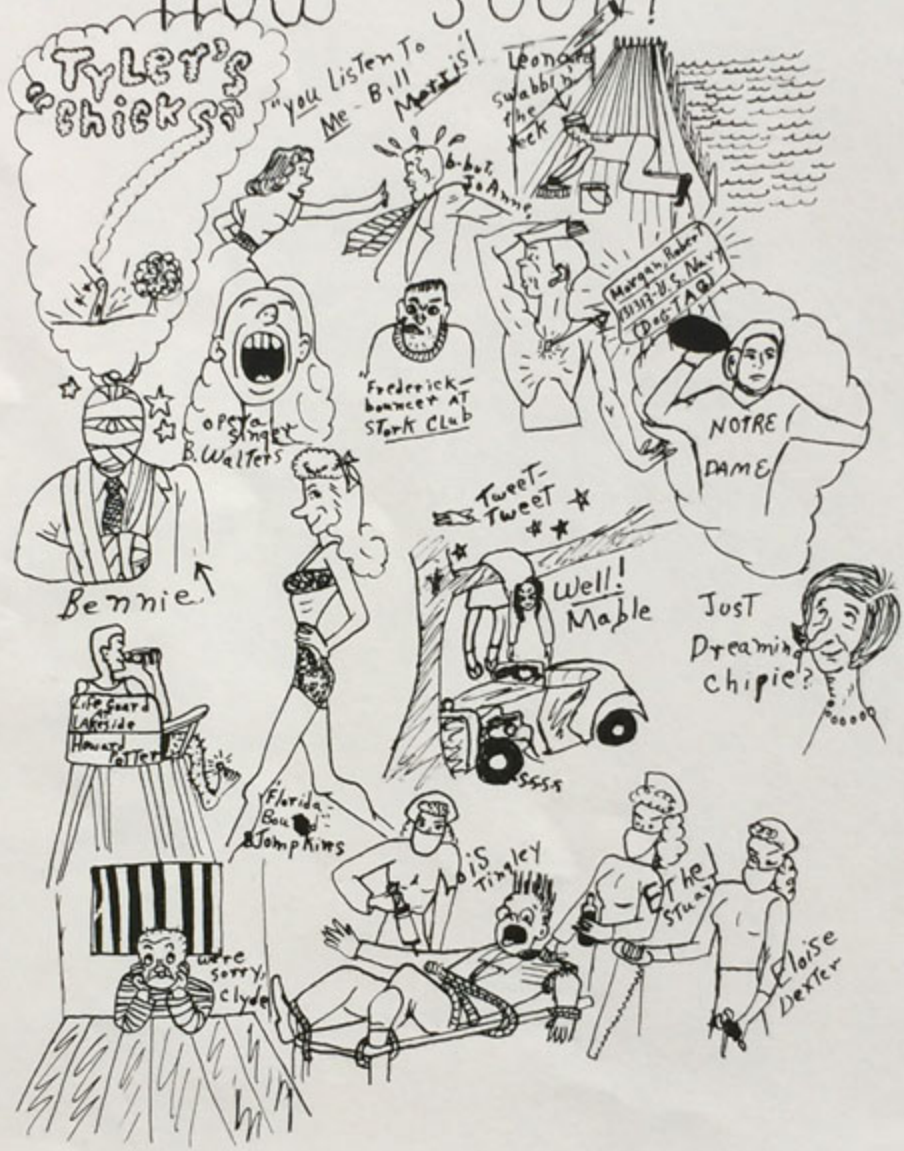 Tyler's
"Chicks"
"you Listen To
Me - Bill
Martis!
b-but,
JoAnne,
Leonard
swabbin'
the
deck
Morgan, Robert
131313-U.S. Navy
(Dog-TAG)
opera
singer
B. Walters
"Frederick-
bouncer AT
STork CLub
NOTRE
DAME
Bennie
Tweet-
Tweet
Well!
Mable
Just
Dreaming
Chipie?
Life Guard
at
LAKeside
Howard
Potter
"Florida-
Bound"
B Tompkins
SSSSS
ois
Tingley
Ethel
Stuart
Eloise
Dexter
we're
sorry,
Clyde